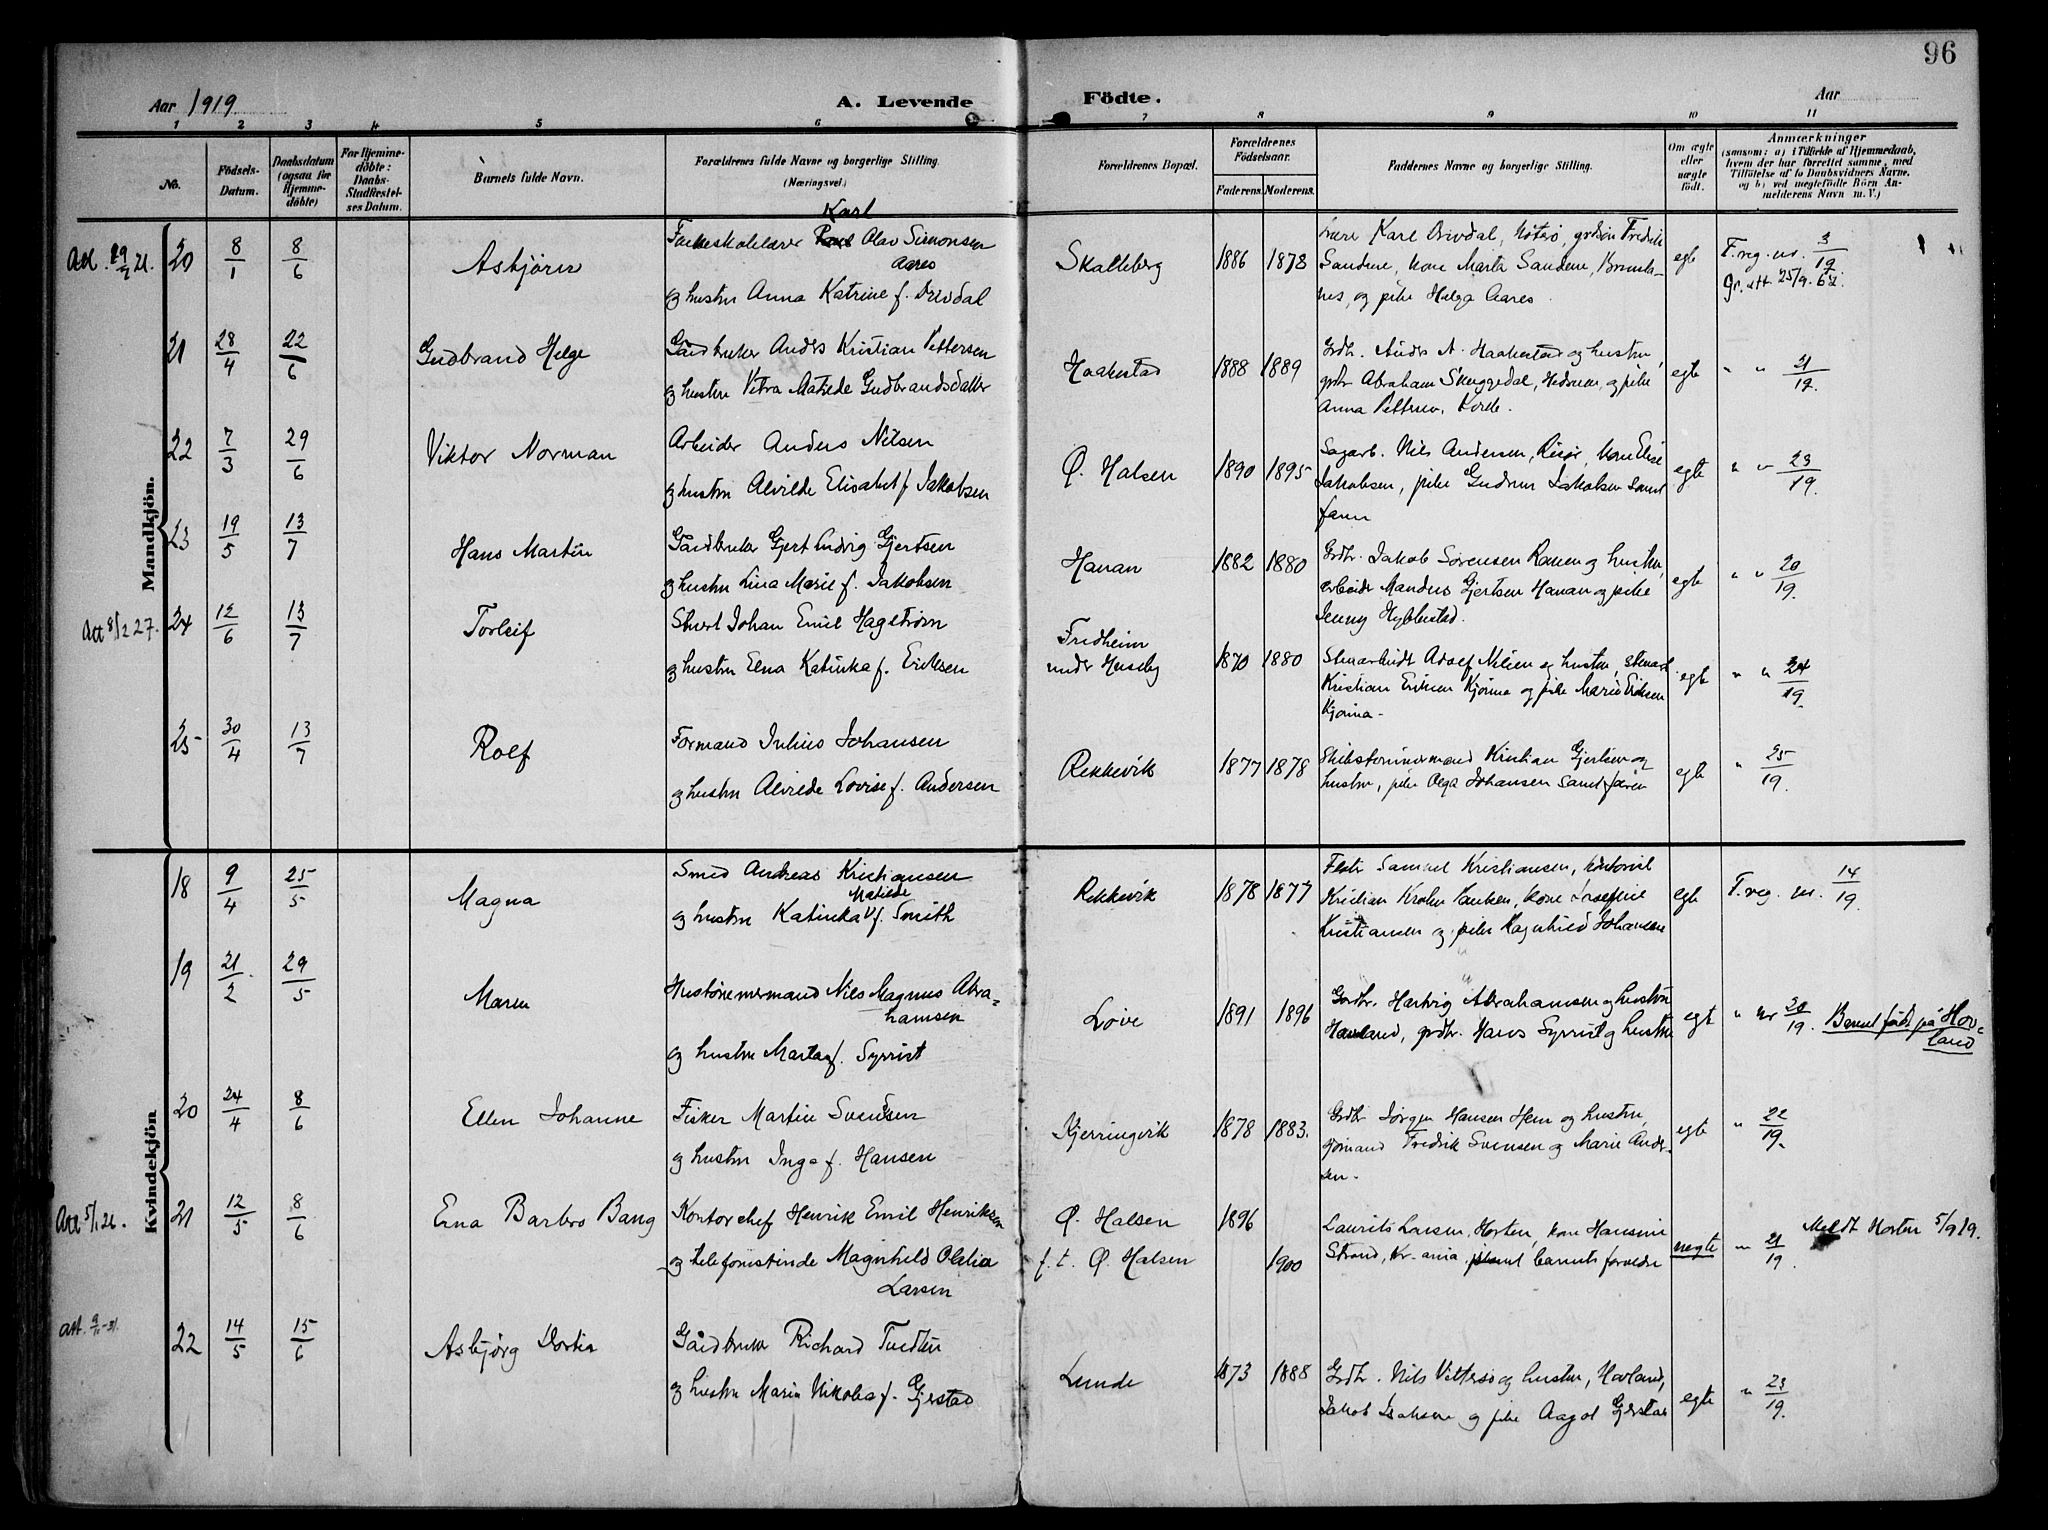 96
Aar 1919
A. Levende Födte.
Aar
1 2 3 4 5 6 7 8 9 10 11
No.
Födsels-Datum.
Daabsdatum (ogsaa for Hjemme-döbte)
For Hjemme-döbte: Daabs-Stadfæstel-ses Datum.
Barnets fulde Navn.
Forældrenes fulde Navne og borgerlige Stilling.
(Næringsvei.)
Forældrenes Bopæl.
Forældrenes Födselsaar.
Faderens. Moderens.
Faddernes Navne og borgerlige Stilling.
Om ægte eller uægte født.
Anmærkninger
(saasom: a) i Tilfælde af Hjemmedaab,
hvem der har forrettet samme, med
Tilföielse af to Daabsvidners Navne,
og b) ved uægtefödte Börn An-
melderens Navn m. V.)
Mandkjön.
20 8/1 8/6 Asbjörn
Karl
Folkeskolelærer Olav Simonsen
Aares
og hustru Anna Katrine f. Drivdal
Skalleberg 1886 1878
Karl Drivdal, Nötterö, Fredrik
Sandene, kone Marta Sandene, Brunla-
nes, og pike Helga Aares.
egte F. reg. nr. 3/19
gr. att. 25/9. 62.
21 28/4 22/6 Gudbrand Helge
Gårdbruker Anders Kristian Pettersen
og hustru Petra Matilde Gudbrandsdatter
Haakestad 1888 1889
Grdbr. Anders A. Haakestad og hustru,
grdbr Abraham Skuggedal, Hedrum, og pike
Anna Pettersen,
egte " " 21/19.
22 7/3 29/6 Viktor Norman
Arbeider Anders Nilsen
og hustru Alvilde Elisabet f. Jakobsen
Ø. Halsen 1890 1895
Sagarb. Nils Andersen, Risør, kone Elise
Jakobsen, pike Gudrun Jakobsen samt
faren
egte " " 23/19.
23 19/5 13/7 Hans Martin
Gårdbruker Gjert Ludvig Gjertsen
og hustru Lina Marie f. Jakobsen
Hanan 1882 1880
Grdbr. Jakob Sörensen Rauen og hustru,
arbeider Mandus Gjertsen Hanan og pike
Jenny Hybbestad.
egte " " 20/19.
Att 8/2 27. 24 12/6 13/7 Torleif
Stuert Johan Emil Hagström
og hustru Elna Katinka f. Eriksen
Fredheim
under Huseby 1870 1880
Adolf Nilsen og hustru, stuert
Kristian Eriksen Kjönna og pike Marie Eriksen
Kjönna -
egte " " 24/19.
25 30/4 13/7 Rolf
Formand Julius Johansen
og hustru Alvilde Lovise f. Andersen
Rekkevik 1877 1878
Skibstömmermand Kristian Gjertsen og
hustru, pike Olga Johansen samt faren
egte " 25/19.
Kvindekjön
18 9/4 25/5 Magna
Smed Andreas Kristiansen
Matilde
og hustru Katinka f. Smith
Rekkevik 1878 1877
Samuel Kristiansen, kontorist
Kristian Paulsen, kone Josefine
Kristiansen og pike Ragnhild Johansen
egte F. reg. nr. 14/19.
19 21/2 29/5 Maren
Hustömmermand Nils Magnus Abra-
hamsen
og hustru Marta f. Syrrist
Löve 1891 1896
Grdbr. Hartvig Abrahamsen og hustru
Havland, grdbr. Hans Syrrist og hustru
egte " nr 30/19. Barnet födt på Hov-
land
20 24/4 8/6 Ellen Johanne
Fisker Martin Svendsen
og hustru Inga f. Hansen
Kjerringvik 1878 1883.
Grdbr Jörgen Hansen Hem og hustru,
Fredrik Svensen og Marie Ander-
sen.
egte " 22/19.
Att 5/1 26. 21 12/5 8/6 Erna Barbro Bang
Kontorchef Henrik Emil Henriksen
og telefonistinde Magnhild Olalia
Larsen
Ø. Halsen 1896
f. t. Ø. Halsen 1900
Laurits Larsen, Horten, kone Hansine
Strand, Kr-ania, samt barnets foreldre
uegte " 21/19. Meldt Horten 5/9 19.
att. 22 14/5 15/6 Asbjörg Dortea
Gårdbruker Richard Tvedten
og hustru Maria Nikolea f. Gjerstad
Lunde 1873 1888
Grdbr. Nils Vittersö og hustru, Havland,
Jakob Isaksen og pike Aagot Gjerstad
egte " 23/19.